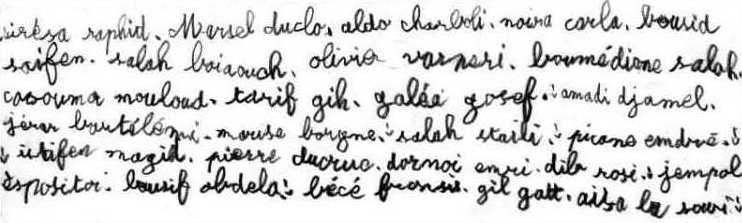 raphid. Marsel duclo. aldo charboli. noira carla. bousid
saifen. salah boiaouch. olivier varneri. boumédiane salah.
casouma mouloud. tarif gih. galéa gosef. amadi djamel.
bartélémi. mouse borgne. salah staili. picano emdré.
magid. pierre ducruc. dornoi emri. dib rosi. jempol
èspositoi. bousif abdela. bécé fransis. gil gatt. aisa la souri